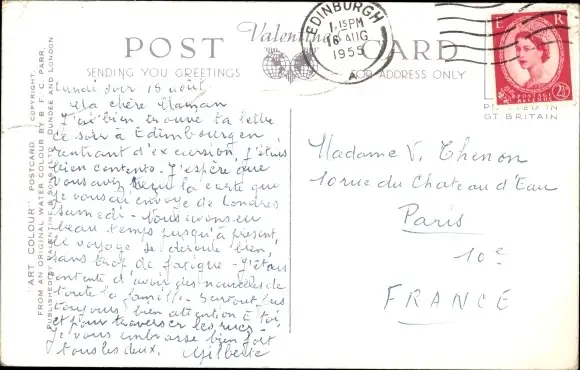 POST CARD
Valentine's
SENDING YOU GREETINGS
FOR ADDRESS ONLY
EDINBURGH
1.15PM
16 AUG
1955
A
E R
POSTAGE
REVENUE
2½
PRINTED IN
GT BRITAIN
"ART COLOUR" POSTCARD COPYRIGHT
FROM AN ORIGINAL WATER COLOUR BY B. F. C. PARR.
PUBLISHED BY VALENTINE & SONS LTD. DUNDEE AND LONDON
Lundi soir 15 août
Ma chère Maman
J'ai bien trouvé ta lettre
ce soir à Edimbourg en
rentrant d'excursion, j'étais
bien contente. J'espère que
vous avez reçu la carte que
je vous ai envoyé de Londres
samedi - Nous avons eu
beau temps jusqu'à présent,
le voyage se déroule bien,
sans trop de fatigue - J'étais
contente d'avoir des nouvelles de
toute la famille. Surtout fais
toujours bien attention à toi,
et pour traverser les rues -
Je vous embrasse bien fort
tous les deux. Gilberte
Madame V. Thenon
10 rue du Chateau d'Eau
Paris
10e
FRANCE